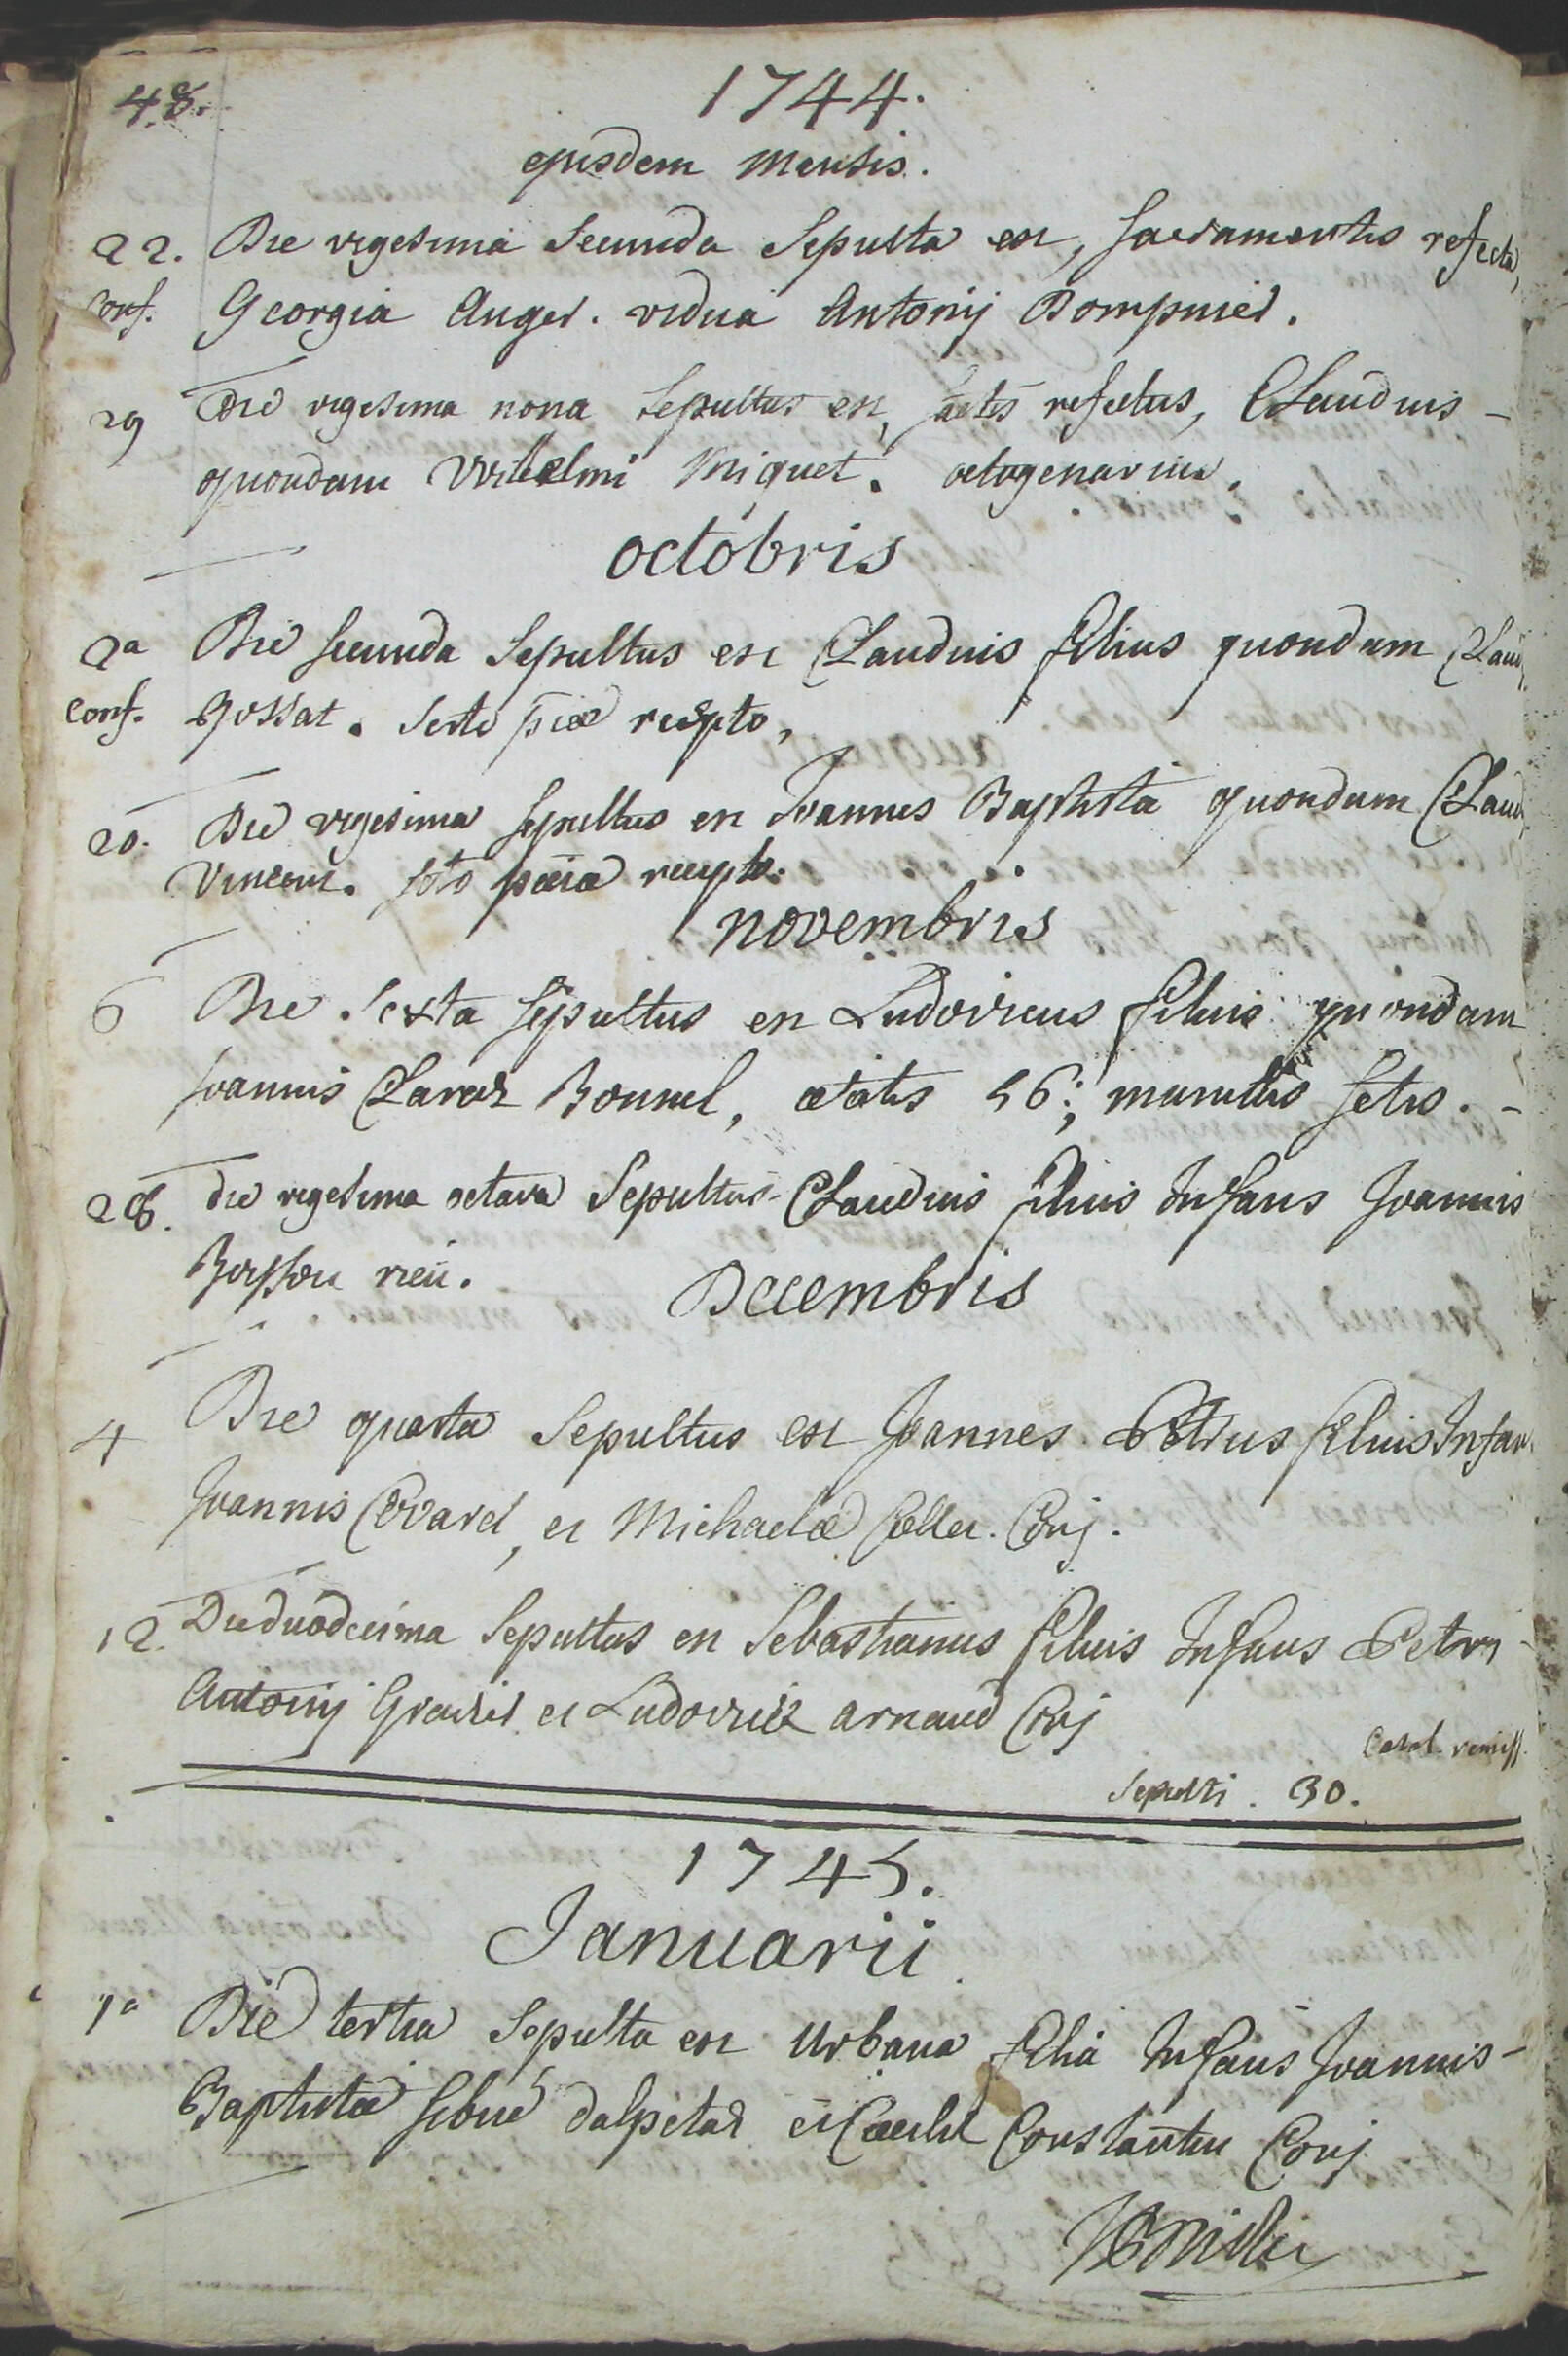 48.
1744.
ejusdem Mensis.
22. Die vigesima Secunda Sepulta est, Sacramentis refecta,
Conf. Georgia Anger. vidua Antonij Bompuiel.
29 die vigesima nona Sepultus est, sactis refectus, Claudius -
quondam Vvilelmi Miquet. octogenarius.
octobris
2a Die secunda Sepultus est Claudius filius quondam Claud
conf. Gossat. Scto recepto,
20. Die vigesima sepultus est Joannes Baptista quondam Claud
Vincent. recepto.
novembris
6 Die Sexta sepultus est Ludovicus filius quondam
Joannis Claraz Bonnel, ætatis 56; munitus sctis. -
28. die vigesima octava Sepultus Claudius filius Infans Joannis
rieu.
Decembris
4 Die quarta Sepultus est Joannes Petrus filius Infans
Joannis Covarel, et Michaelæ Conj.
12. Die duodecima Sepultus est Sebastianus filius Infans Petri
Antonij et Ludovicæ arnaud Conj
Catal. remiss.
Sepulti. 30.
1745.
Januarii.
1a Die tertia Sepulta est Urbana filia Infans Joannis -
Baptistæ Sibué dalpetaz et Cæciliæ Constantin Conj